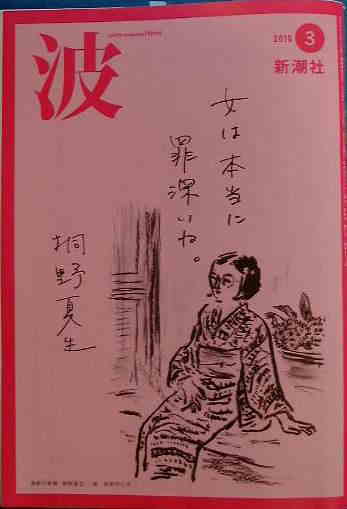 波
2015 3
新潮社
女は本当に
罪深いね。
桐野夏生